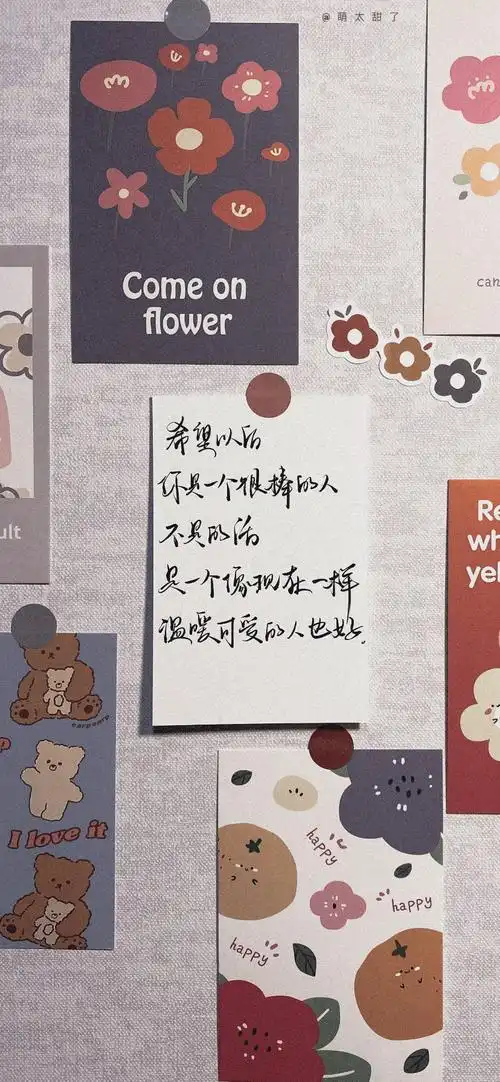 @萌太甜了
Come on
flower
can
希望以后
你是一个很棒的人
不是的话
是一个像现在一样
温暖可爱的人也好.
ult
Re
wh
yel
I love it
happy
happy
happy